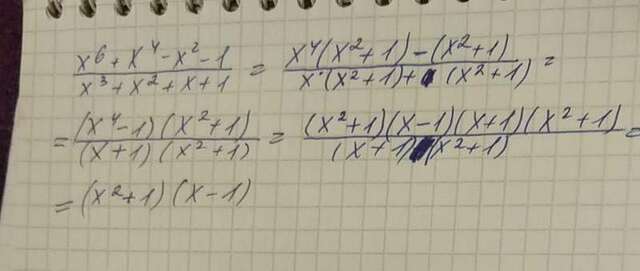 (x⁶ + x⁴ - x² - 1)/(x³ + x² + x + 1) = (x⁴(x² + 1) - (x² + 1))/(x·(x² + 1) + (x² + 1)) =
= ((x⁴ - 1)(x² + 1))/((x + 1)(x² + 1)) = ((x² + 1)(x - 1)(x + 1)(x² + 1))/((x + 1)(x² + 1)) =
= (x² + 1)(x - 1)